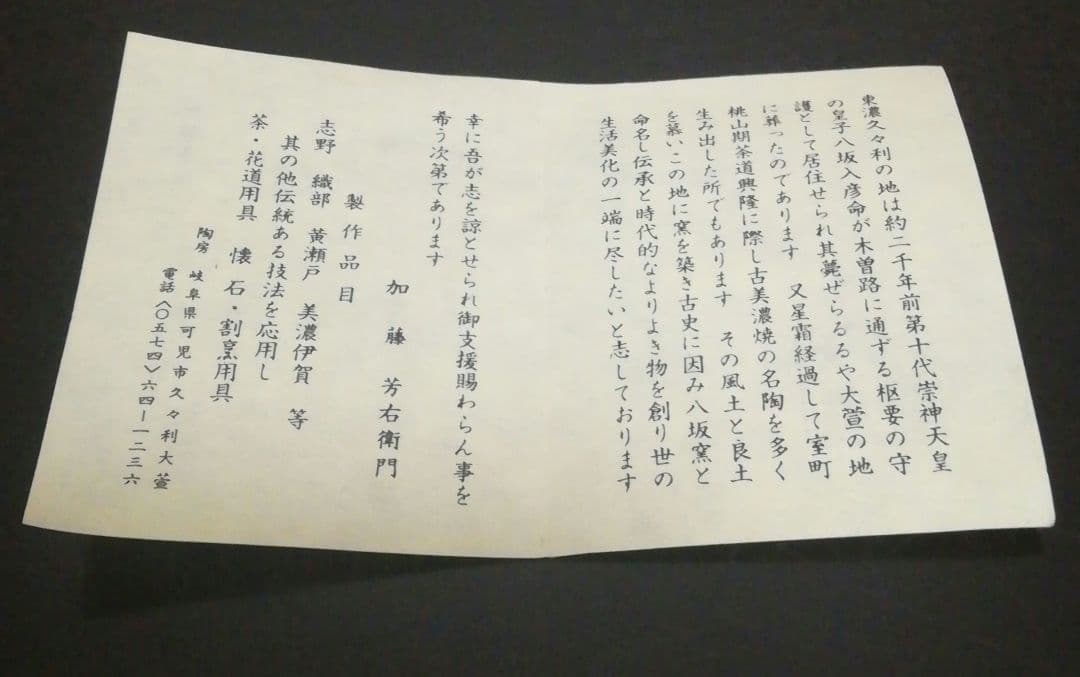 東濃久々利の地は約二千年前第十代崇神天皇
の皇子八坂入彦命が木曽路に通ずる枢要の守
護として居住せられ其薨ぜらるるや大萱の地
に葬ったのであります　又星霜経過して室町
桃山期茶道興隆に際し古美濃焼の名陶を多く
生み出した所でもあります　その風土と良土
を慕いこの地に窯を築き古史に因み八坂窯と
命名し伝承と時代的なよりよき物を創り世の
生活美化の一端に尽したいと志しております
幸に吾が志を諒とせられ御支援賜わらん事を
希う次第であります
加藤　芳右衛門
製作品目
志野　織部　黄瀬戸　美濃伊賀　等
其の他伝統ある技法を応用し
茶・花道用具　懐石・割烹用具
陶房　岐阜県可児市久々利大萱
電話〈〇五七四〉六四ー一二三六